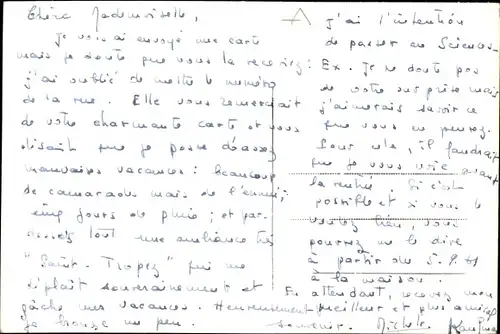 Chère Mademoiselle,
Je vous ai envoyé une carte
mais je doute que vous la receviez:
j'ai oublié de mettre le numéro
de la rue. Elle vous remerciait
de votre charmante carte et vous
disait que je passe d'assez
mauvaises vacances: beaucoup
de camarades mais de l'ennui;
cinq jours de pluie; et par
dessus tout une ambiance très
"Saint-Tropez" qui me
déplait souverainement et
gâche mes vacances. Heureusement
je bronze un peu.
J'ai l'intention
de passer en Sciences-
Ex. Je ne doute pas
de votre surprise mais
j'aimerais savoir ce
que vous en pensez.
Pour cela, il faudrait
que je vous voie avant
la rentrée. Si c'est
possible et si vous le
voulez bien, vous
pourrez me le dire
à partir du 5.9
à la maison.
En attendant, recevez mon
meilleur et plus amical
souvenir. Michèle